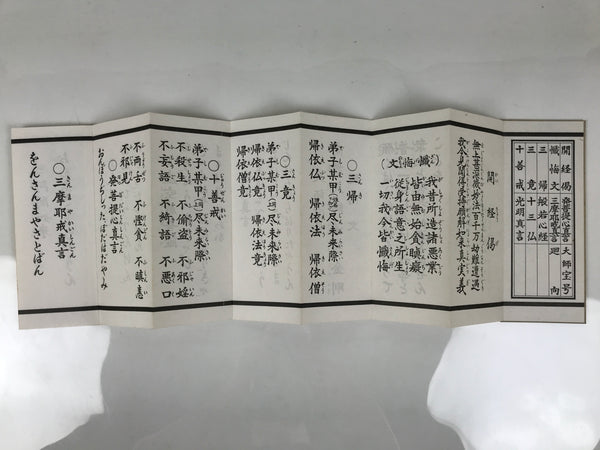 開経偈 発菩提心真言 大師宝号
懺悔文 三摩耶戒真言 廻向
三帰 般若心経
三竟 十三仏
十善戒 光明真言
開経偈
無上甚深微妙法百千万劫難遭遇
我今見聞得受持願解如来真実義
懺悔文
我昔所造諸悪業
皆由無始貪瞋癡
従身語意之所生
一切我今皆懺悔
○三帰
弟子某甲 尽未来際
帰依仏 帰依法 帰依僧
○三竟
弟子某甲 尽未来際
帰依仏竟 帰依法竟
帰依僧竟
○十善戒
弟子某甲 尽未来際
不殺生 不偸盗 不邪婬
不妄語 不綺語 不悪口
不両舌 不慳貪 不瞋恚
不邪見
○発菩提心真言
おんぼうちしったぼだはだやみ
○三摩耶戒真言
おんさんまやさとばん